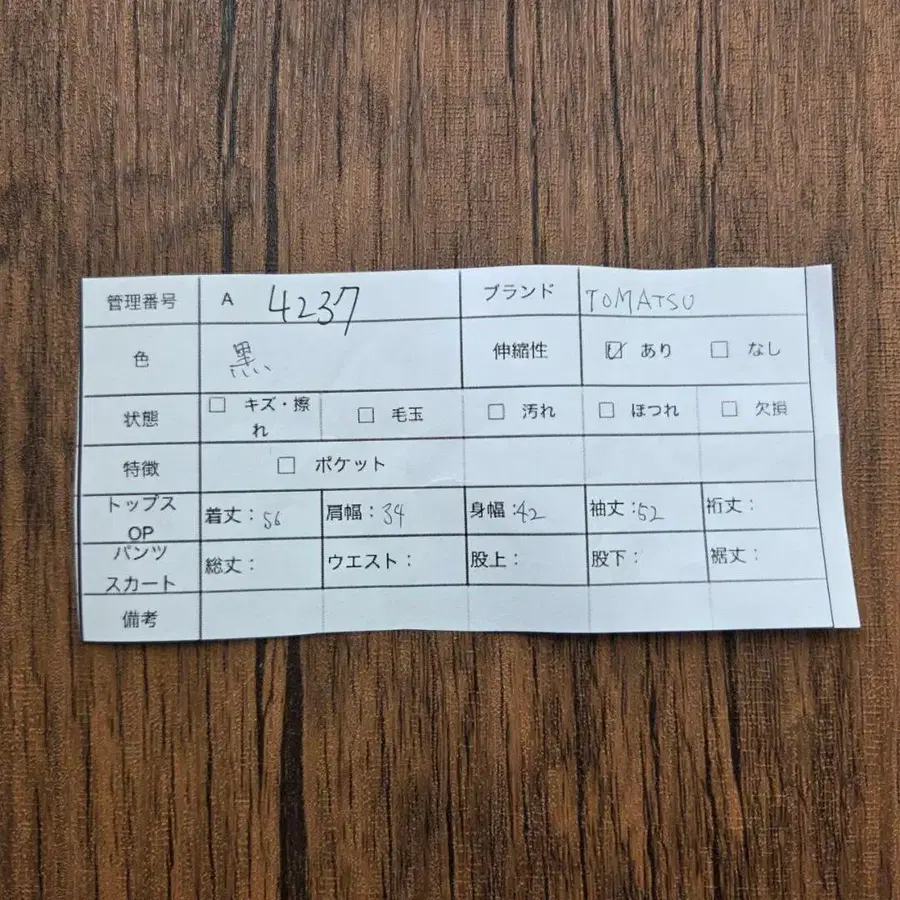 管理番号 A 4237 ブランド TOMATSU
色 黒 伸縮性 ☑ あり ☐ なし
状態 ☐ キズ・擦れ ☐ 毛玉 ☐ 汚れ ☐ ほつれ ☐ 欠損
特徴 ☐ ポケット
トップス OP 着丈：56 肩幅：34 身幅：42 袖丈：52 裄丈：
パンツ スカート 総丈： ウエスト： 股上： 股下： 裾丈：
備考